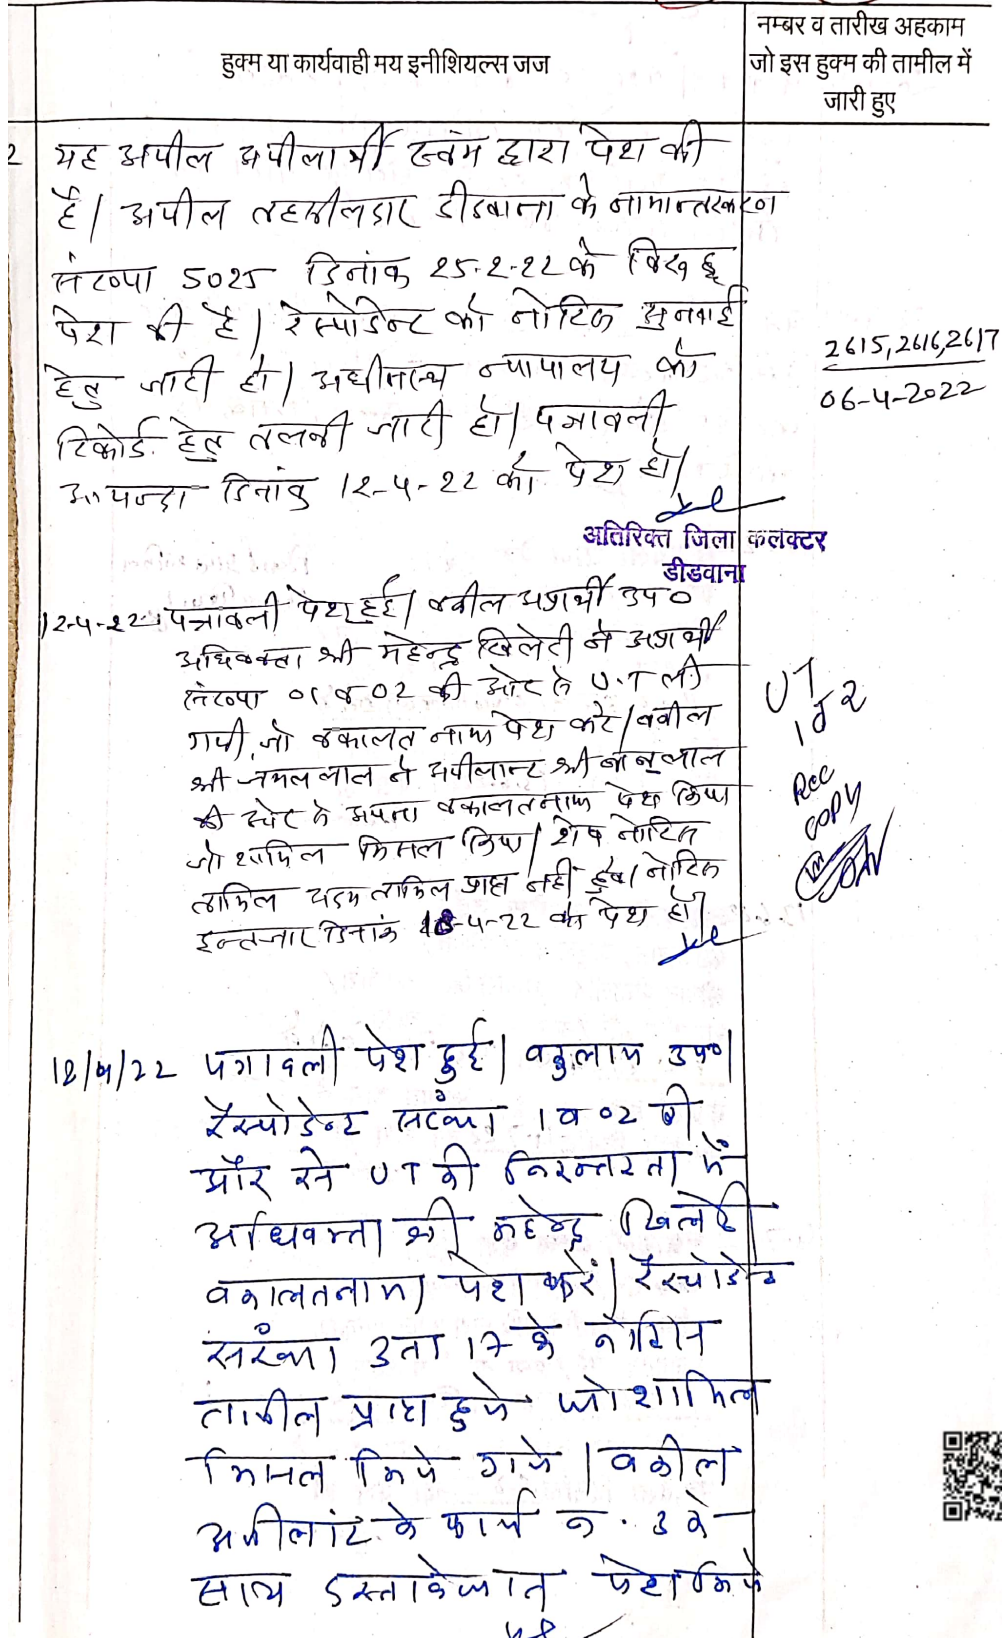 हुक्म या कार्यवाही मय इनीशियल्स जज
नम्बर व तारीख अहकाम
जो इस हुक्म की तामील में
जारी हुए
2 यह अपील अपीलार्थी स्वंम द्वारा पेश की
है। अपील तहसीलदार डीडवाना के नामान्तरकरण
संख्या 5025 दिनांक 25-2-22 के विरुद्ध
पेश की है। रेस्पोडेन्ट को नोटिस सुनवाई
हेतु जारी हो। अधीनस्थ न्यायालय को
रिकोर्ड हेतु तलबी जारी हो। पत्रावली
आयन्दा दिनांक 12-4-22 को पेश हो।
2615,2616,2617
06-4-2022
अतिरिक्त जिला कलक्टर
डीडवाना
12-4-22 पत्रावली पेश हुई। वकील अप्रार्थी उप०
अधिवक्ता श्री महेन्द्र खिलेरी ने अप्रार्थी
संख्या 01 व 02 की ओर से U.T ली
गयी, जो वकालत नामा पेश करे। वकील
श्री लाल ने अपीलान्ट श्री लाल
की ओर से अपना वकालतनामा पेश किया
जो शामिल मिसल किया। शेष नोटिस
तामिल अदम तामिल प्राप्त नहीं हुये। नोटिस
इन्तजार दिनांक 18-4-22 को पेश हो।
UT
1 व 2
Rec
COPY
18/4/22 पत्रावली पेश हुई। वकुलाय उप०।
रैस्पोडेन्ट संख्या 1 व 02 की
और से UT की निरन्तरता में
अधिवक्ता श्री महेन्द्र खिलेरी
वकालतनामा पेश करें। रैस्पोडेन्ट
संख्या 3 ता 17 के नोटिस
तामील प्राप्त हुये जो शामिल
मिसल किये गये। वकील
अपीलांट के फार्म न. 3 के
साथ दस्तावेजात पेश किये